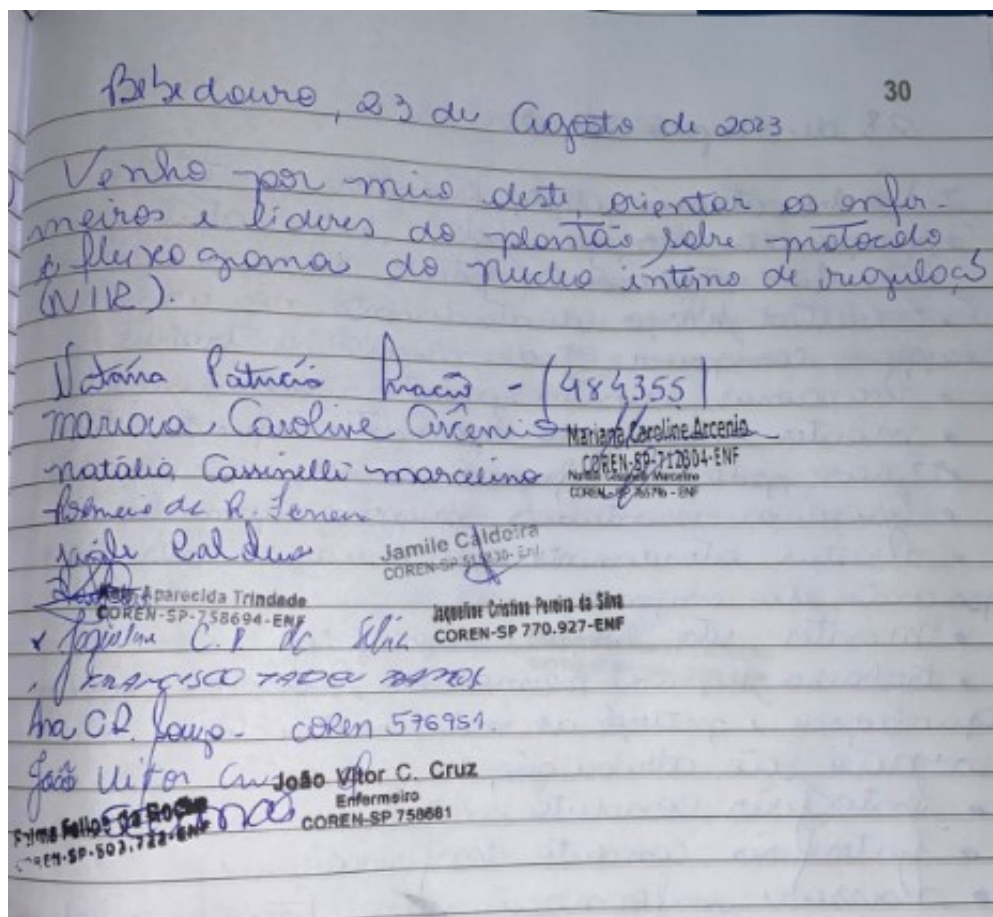 30
Bebedouro, 23 de Agosto de 2023
Venho por meio deste, orientar os enfer-
meiros e líderes do plantão sobre protocolo
e fluxograma do Nucleo interno de regulaçã
(NIR).
Patrícia - (484355)
Mariana Caroline Arcenio
Mariana Caroline Arcenio
COREN-SP-712604-ENF
Natália Cassinelli Marcelino
Natália Cassinelli Marcelino
COREN-SP - ENF
de R.
Caldeira
Jamile Caldeira
COREN-SP
Aparecida Trindade
COREN-SP-758694-ENF
Jaqueline Cristina Pereira da Silva
COREN-SP 770.927-ENF
Jaqueline C. P. da Silva
FRANCISCO TADEU
Ana C.R. Souza - COREN 576951.
João Vitor Cruz
João Vitor C. Cruz
Enfermeiro
COREN-SP 758681
da Rocha
COREN-SP-503.722-ENF